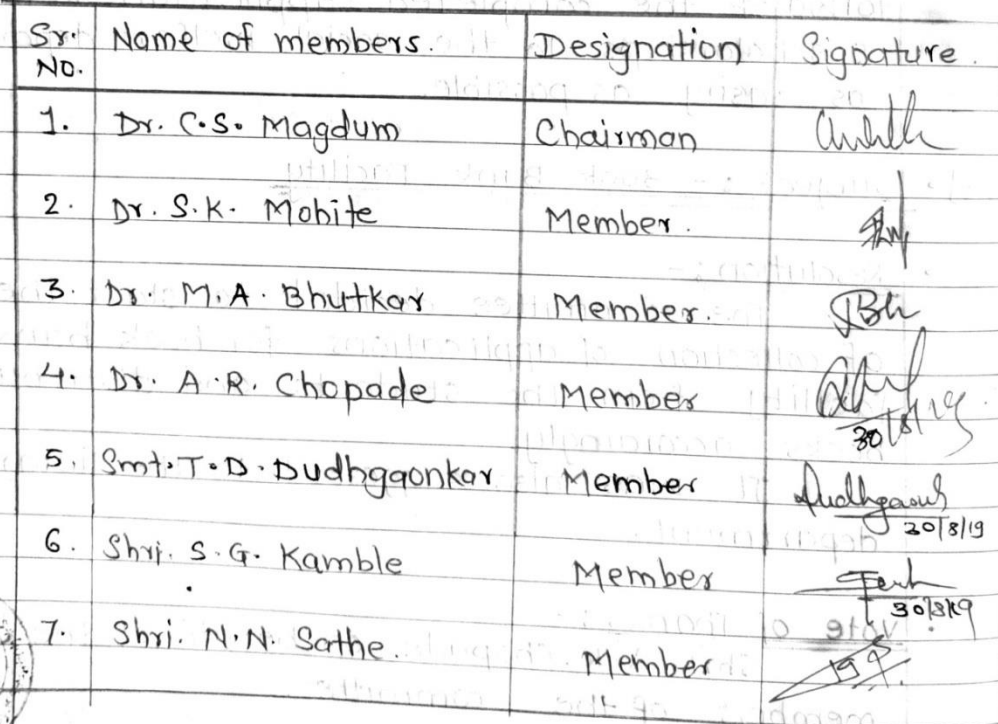 Sr. No. Name of members. Designation Signature.
1. Dr. C.S. Magdum Chairman
2. Dr. S.K. Mohite Member.
3. Dr. M.A. Bhutkar Member.
4. Dr. A.R. Chopade Member 30/8/19
5. Smt. T.D. Dudhgaonkar Member 30/8/19
6. Shri. S.G. Kamble Member 30/8/19
7. Shri. N.N. Sathe. Member